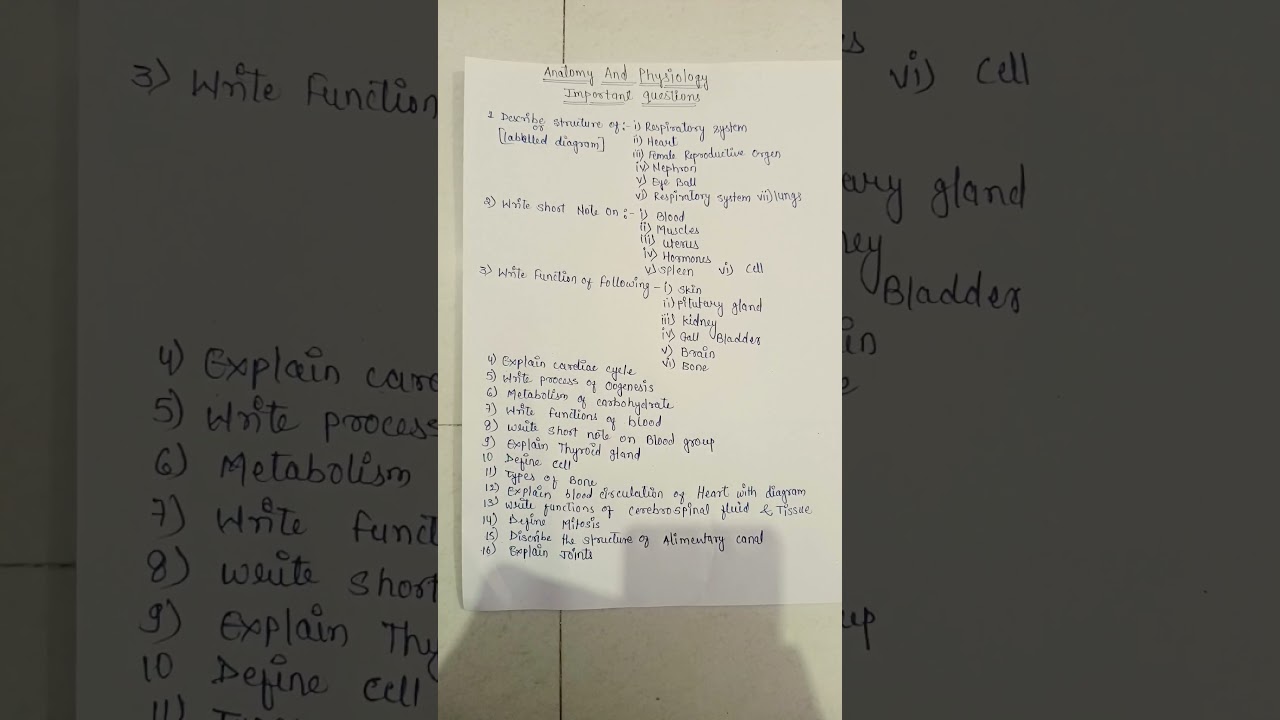 Anatomy And Physiology
Important questions
1 Describe structure of:- i) Respiratory system
or
[labelled diagram] ii) Heart
iii) Female Reproductive Orgen
iv) Nephron
v) Eye Ball
vi) Respiratory system vii) lungs
2) Write short Note on:- i) Blood
ii) Muscles
iii) uterus
iv) Hormones
v) Spleen vi) Cell
3) Write Function of Following - i) Skin
ii) Pitutary gland
iii) kidney
iv) Gall Bladder
v) Brain
vi) Bone
4) Explain cardiac cycle
5) Write process of Oogenesis
6) Metabolism of carbohydrate
7) Write functions of blood
8) Write short note on Blood group
9) Explain Thyroid gland
10 Define Cell
11) Types of Bone
12) Explain blood circulation of Heart with diagram
13) Write functions of cerebrospinal fluid & Tissue
14) Define Mitosis
15) Discribe the structure of Alimentary canal
16) Explain Joints
3) Write Function
4) Explain card
5) Write process
6) Metabolism
7) Write funct
8) Write short
9) Explain Thy
10 Define Cell
11)
vi) Cell
ary gland
ney
Bladder
in
up